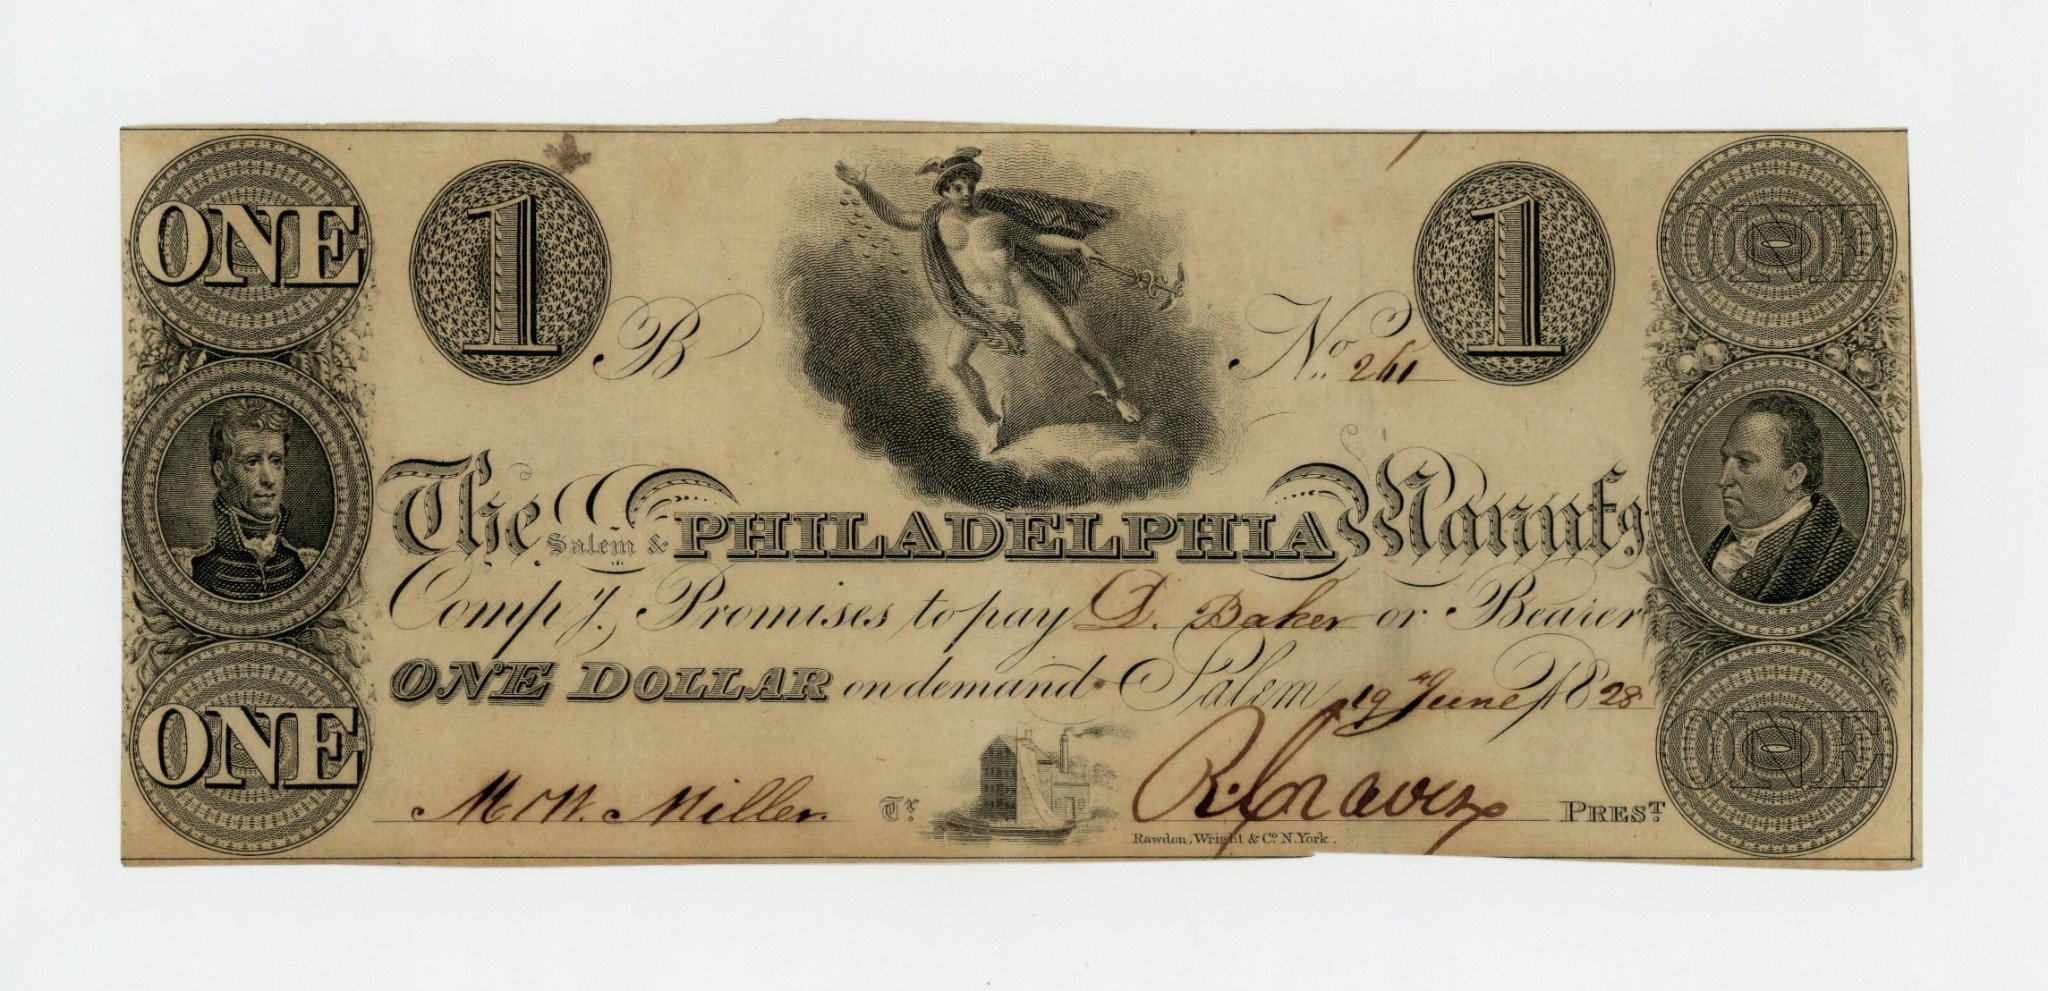 ONE 1 B No. 261 1 ONE
The Salem & PHILADELPHIA Manufg.
Compy. Promises to pay D. Baker or Bearer
ONE DOLLAR on demand. Salem, 19 June 1828
M W. Miller. Tr. R. Craven PREST
Rawdon, Wright & Co. N. York.
ONE ONE